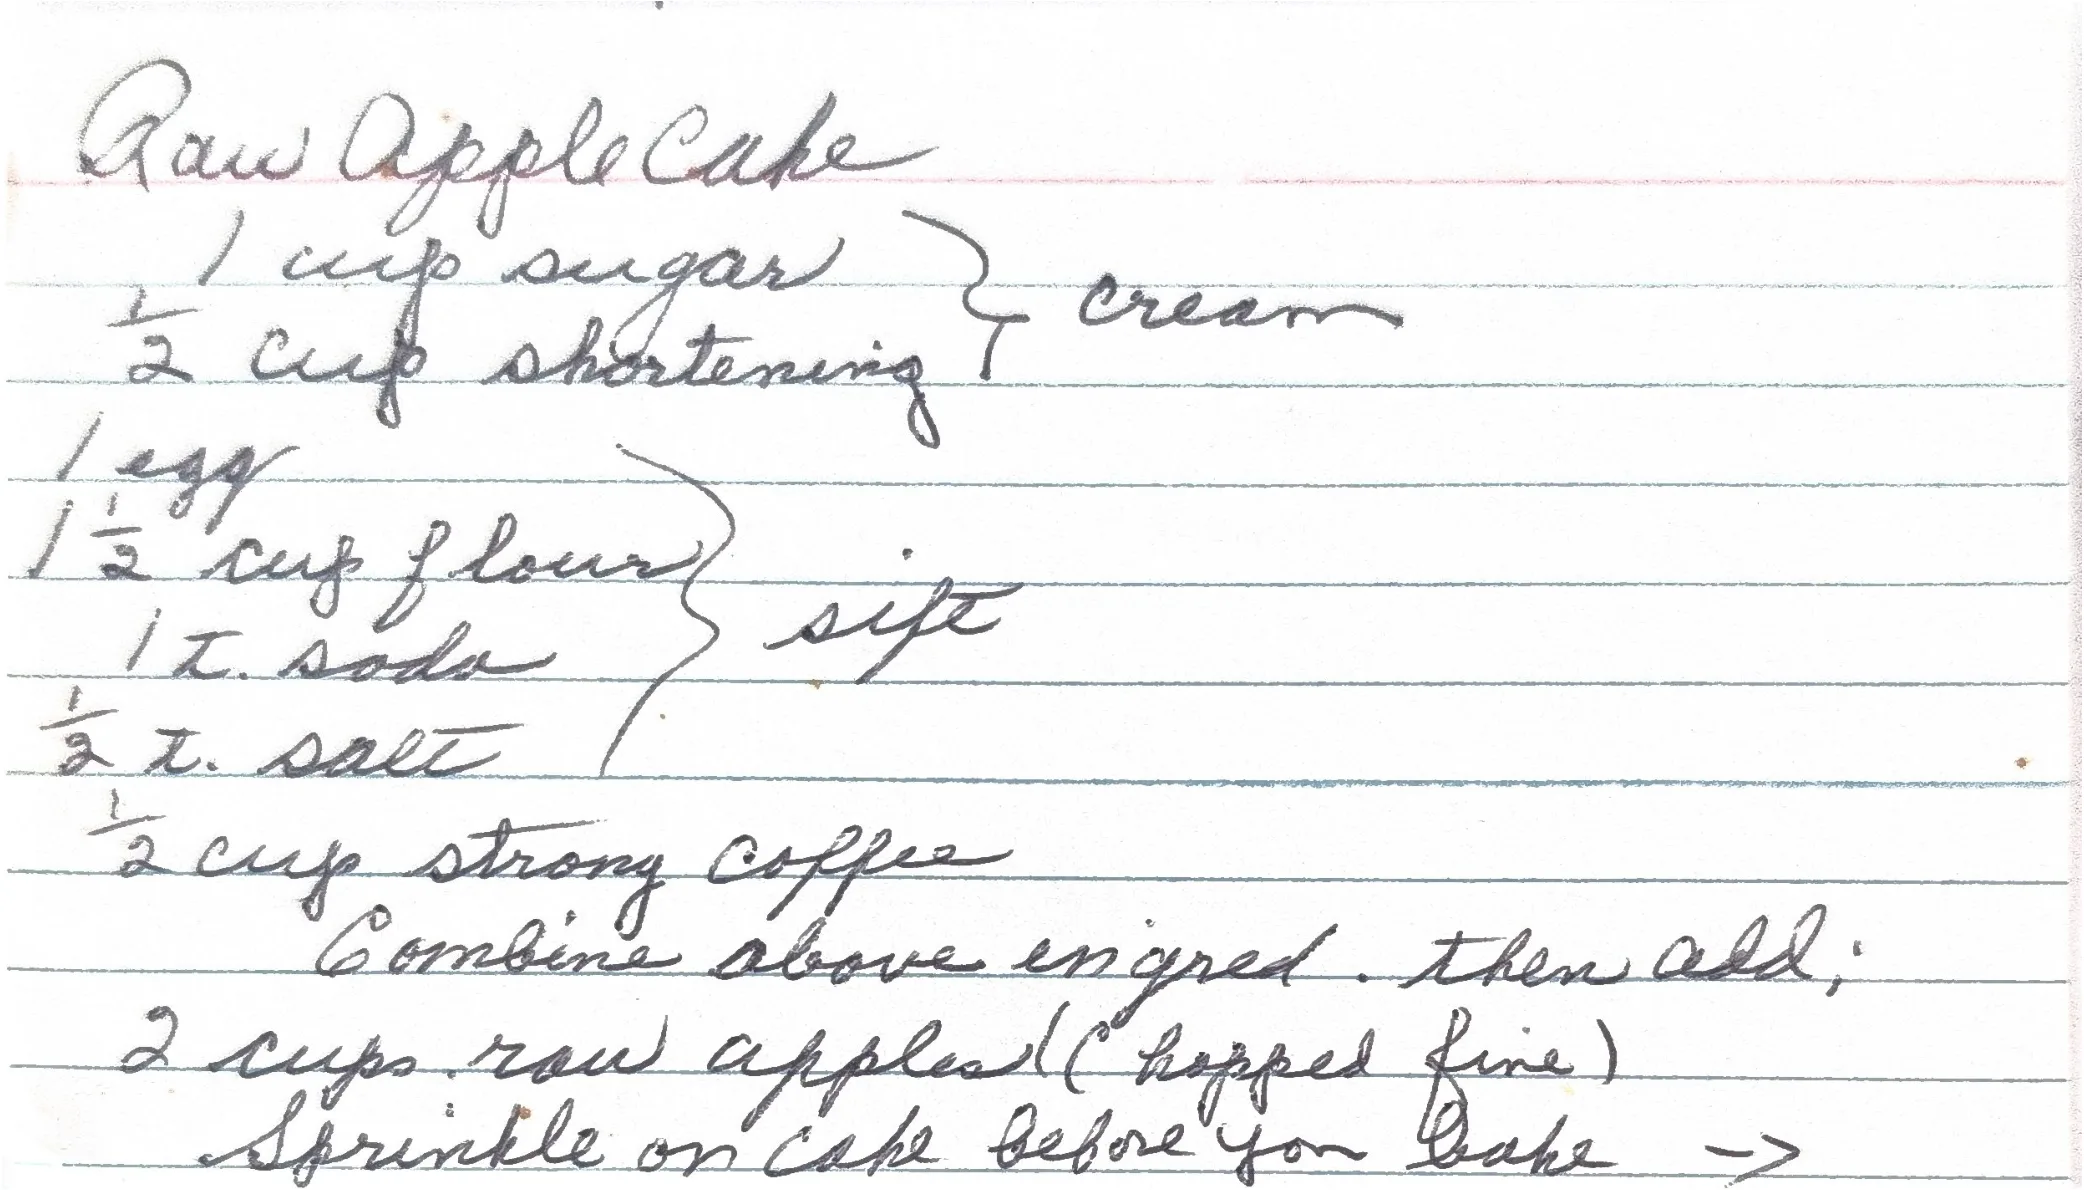 Raw Apple Cake
1 cup sugar
1/2 cup shortening } cream
1 egg
1 1/2 cup flour
1 t. soda } sift
1/2 t. salt
1/2 cup strong coffee
Combine above ingred. then add;
2 cups raw apples (Chopped fine)
Sprinkle on cake before you bake ->